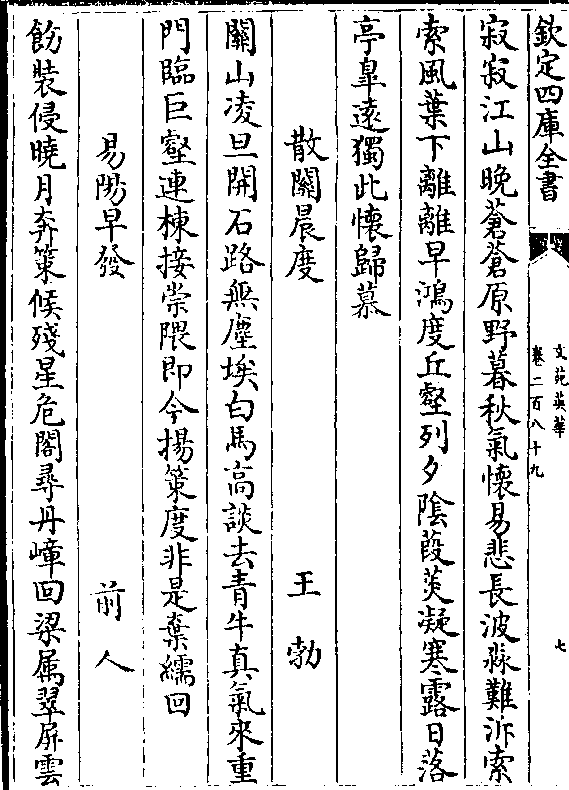 欽定四庫全書
文苑英華
卷二百八十九
七
寂寂江山晚蒼蒼原野暮秋氣懷易悲長波淼難泝索
索風葉下離離早鴻度丘壑列夕陰葭菼凝寒露日落
亭臯遠獨此懷歸慕
散關晨度 王勃
關山凌旦開石路無塵埃白馬高談去青牛真氣來重
門臨巨壑連棟接崇隈即今揚策度非是棄繻回
易陽早發 前人
飭裝侵曉月奔策候殘星危閣尋丹嶂回梁屬翠屏雲